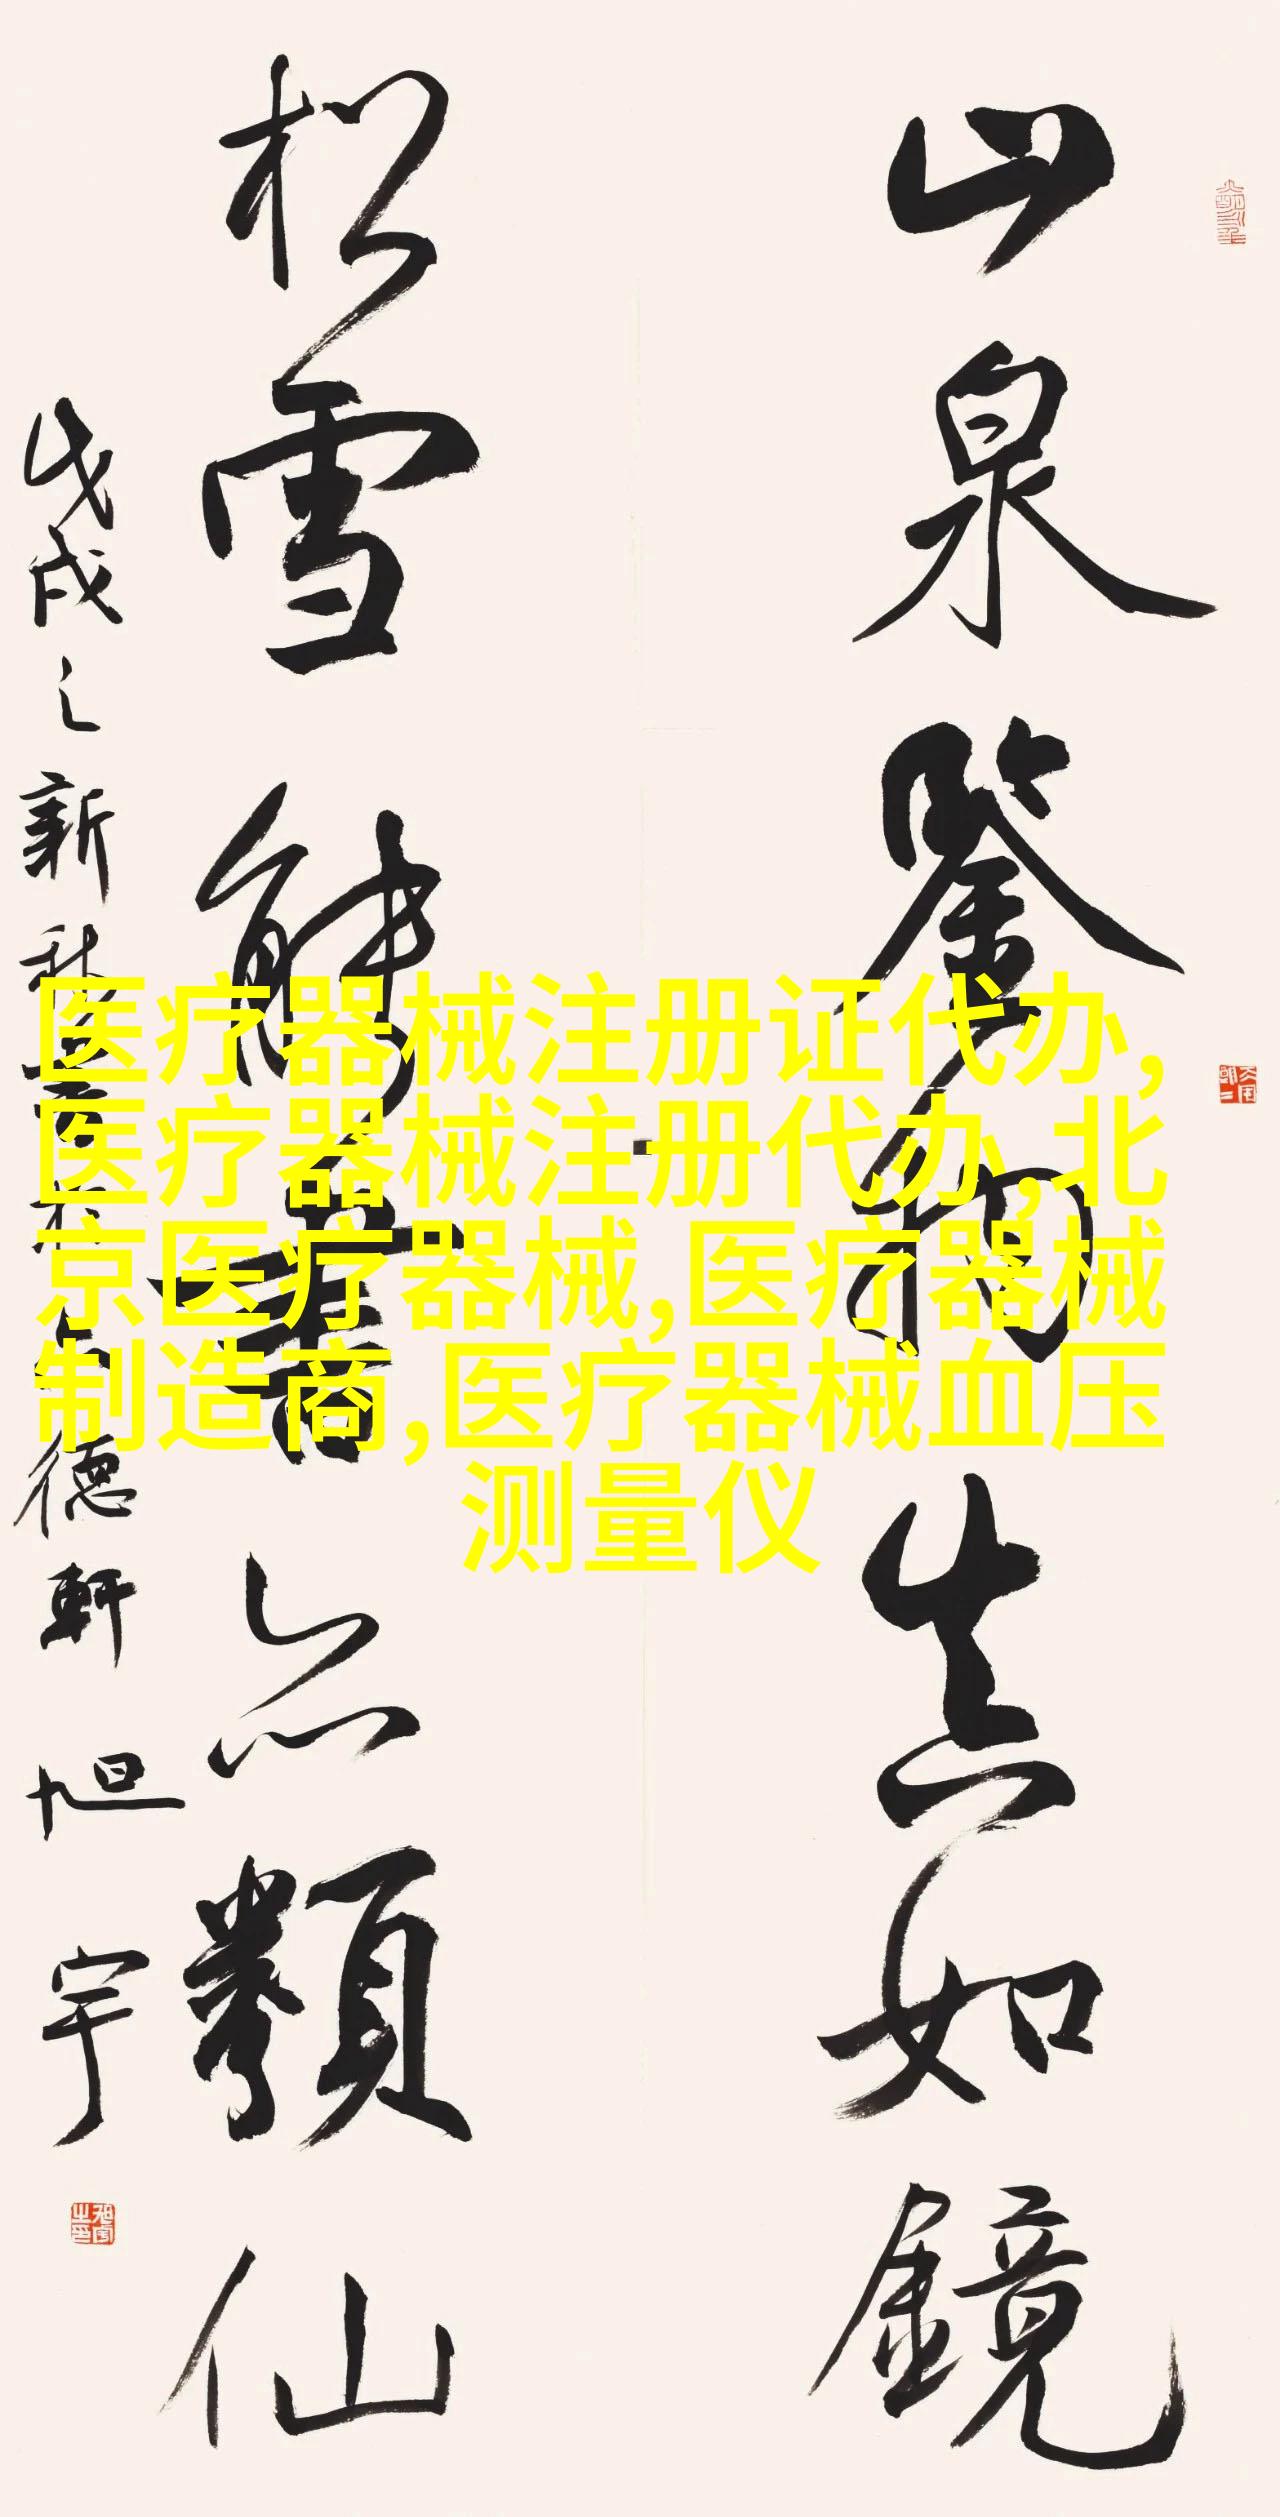 山泉鑒物真如鏡
松雪
類仙
戊戌之新秋
德軒
旭宇
医疗器械注册证代办,
医疗器械注册代办,北
京医疗器械,医疗器械
制造商,医疗器械血压
测量仪